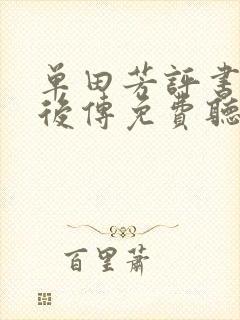 單田芳評書
後傳免費聽
百里蕭